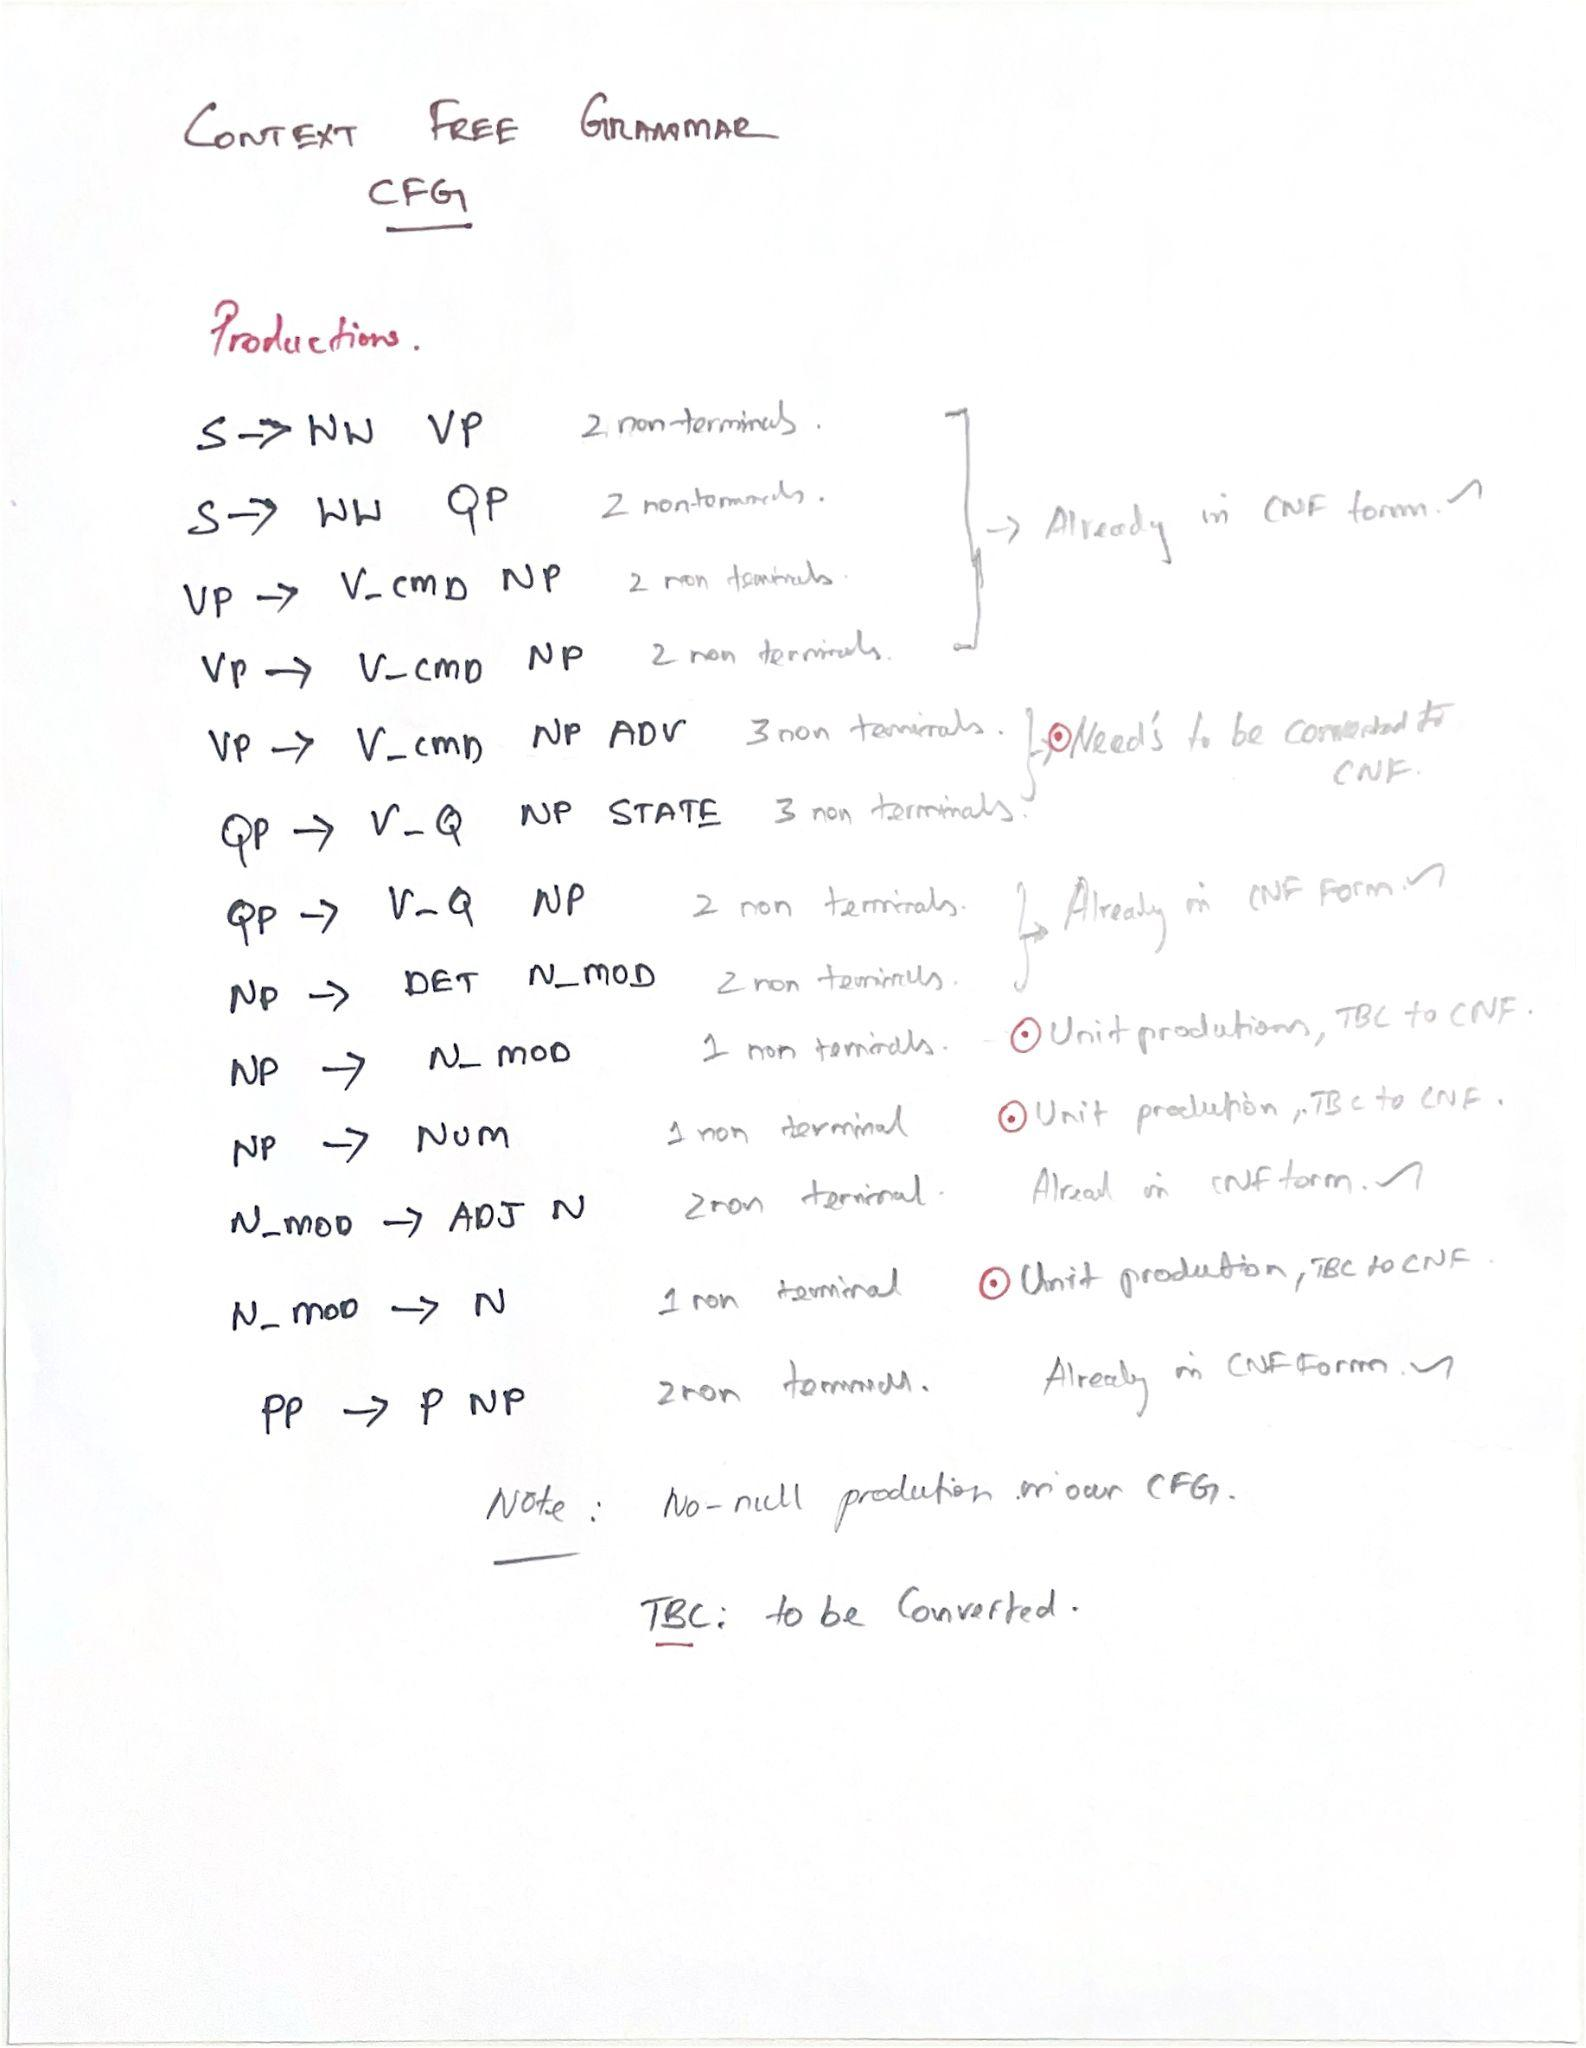 CONTEXT FREE GRAMMAR
CFG
Productions.
S → WW VP 2 non-terminals.
S → WW QP 2 non-terminals. → Already in CNF form.
VP → V_CMD NP 2 non terminals.
VP → V_CMD NP 2 non terminals.
VP → V_CMD NP ADV 3 non terminals. Need's to be converted to
CNF.
QP → V_Q NP STATE 3 non terminals.
QP → V_Q NP 2 non terminals. → Already in CNF Form.
NP → DET N_MOD 2 non terminals.
NP → N_MOD 1 non terminals. Unit produtions, TBC to CNF.
NP → NUM 1 non terminal Unit prodution, TBC to CNF.
N_MOD → ADJ N 2 non terminal. Alread in CNF form.
N_MOD → N 1 non terminal Unit prodution, TBC to CNF.
PP → P NP 2 non terminals. Already in CNF Form.
Note: No-null prodution in our CFG.
TBC: to be Converted.